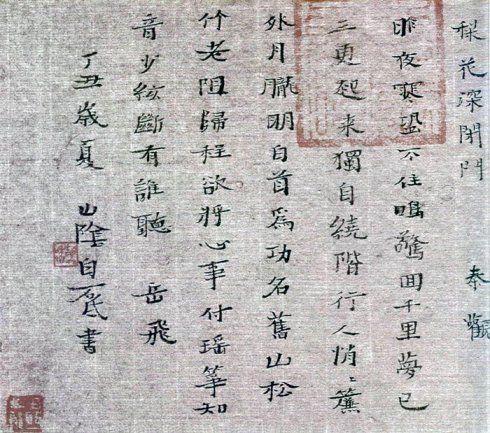 梨花深閉門 秦觀
昨夜寒蛩不住鳴驚回千里夢已
三更起來獨自繞階行人悄〻簾
外月朧明白首爲功名舊山松
竹老阻歸程欲將心事付瑤箏知
音少絃斷有誰聽 岳飛
丁丑歲夏 山陰自書